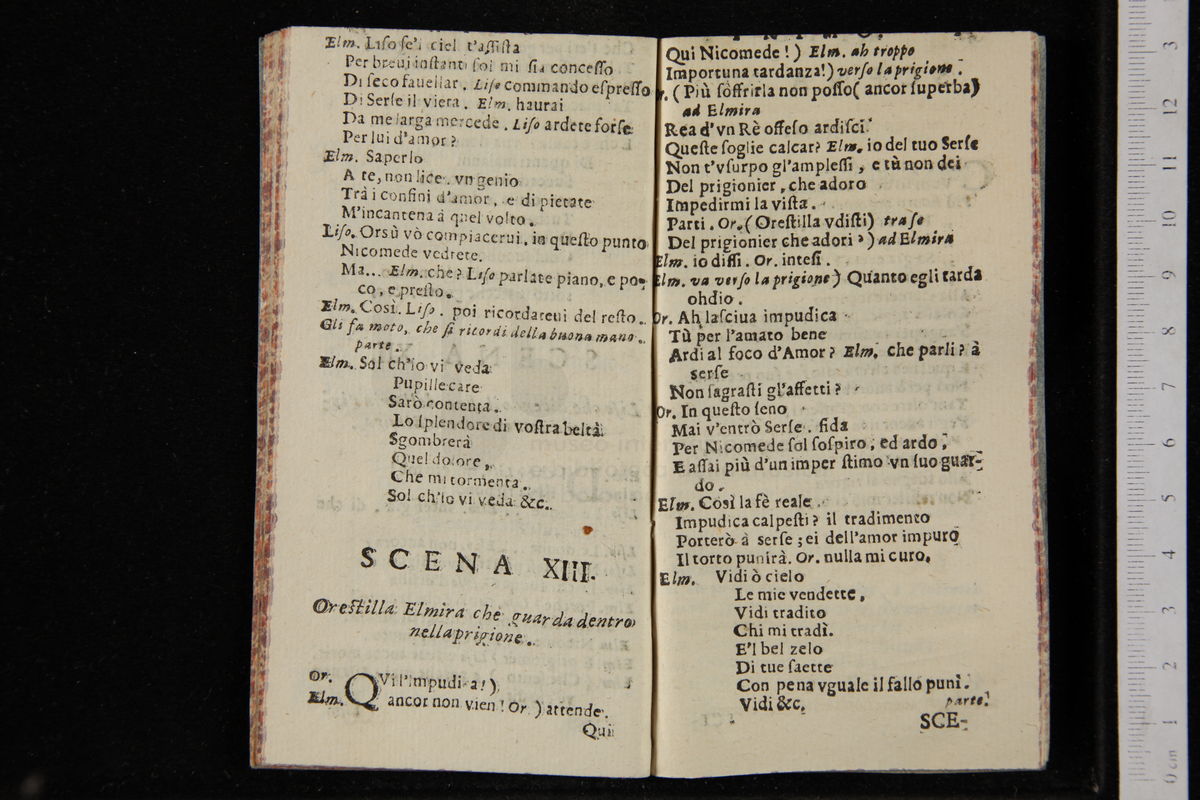 Elm. Liſo ſe'l ciel t'aſſiſta
Per breui inſtanti ſol mi ſia conceſſo
Di ſeco fauellar. Liſo commando eſpreſſo
Di Serſe il vieta. Elm. haurai
Da me larga mercede. Liſo ardete forſe
Per lui d'amor?
Elm. Saperlo
A te, non lice. vn genio
Trà i confini d'amor, e di pietate
M'incantena à quel volto.
Liſo. Orsù vò compiacerui, in queſto punto
Nicomede vedrete.
Ma... Elm. che? Liſo parlate piano, e po-
co, e preſto.
Elm. Così. Liſo. poi ricordateui del reſto.
Gli fa moto, che ſi ricordi della buona mano.
parte.
Elm. Sol ch'io vi veda
Pupille care
Sarò contenta.
Lo ſplendore di voſtra beltà
Sgombrerà
Quel dolore,
Che mi tormenta.
Sol ch'io vi veda &c.
SCENA XIII.
Oreſtilla Elmira che guarda dentro
nella prigione.
Or. QVì l'impudica!)
Elm. ancor non vien! Or.) attende.
Qui
Qui Nicomede!) Elm. ah troppo
Importuna tardanza!) verſo la prigione.
r. (Più ſoffrirla non poſſo (ancor ſuperba)
ad Elmira
Rea d'vn Rè offeſo ardiſci
Queſte ſoglie calcar? Elm. io del tuo Serſe
Non t'vſurpo gl'ampleſſi, e tù non dei
Del prigionier, che adoro
Impedirmi la viſta.
Parti. Or. (Oreſtilla vdiſti) tra ſe
Del prigionier che adori?) ad Elmira
Elm. io diſſi. Or. inteſi.
Elm. va verſo la prigione) Quanto egli tarda
ohdio.
Or. Ah laſciua impudica
Tù per l'amato bene
Ardi al foco d'Amor? Elm. che parli? à
serſe
Non ſagraſti gl'affetti?
Or. In queſto ſeno
Mai v'entrò Serſe. ſida
Per Nicomede ſol ſoſpiro, ed ardo,
E aſſai più d'un imper ſtimo vn ſuo guar-
do.
Elm. Così la fè reale
Impudica calpeſti? il tradimento
Porterò à serſe; ei dell'amor impuro
Il torto punirà. Or. nulla mi curo.
Elm. Vidi ò cielo
Le mie vendette,
Vidi tradito
Chi mi tradì.
E'l bel zelo
Di tue ſaette
Con pena vguale il fallo punì.
Vidi &c. parte.
SCE-